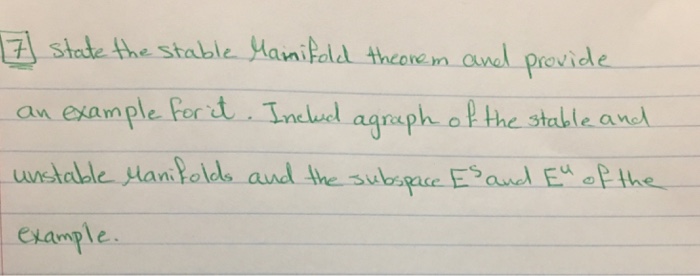 7 State the stable Manifold theorem and provide
an example for it. Includ agraph of the stable and
unstable Manifolds and the subspace E^s and E^u of the
example.